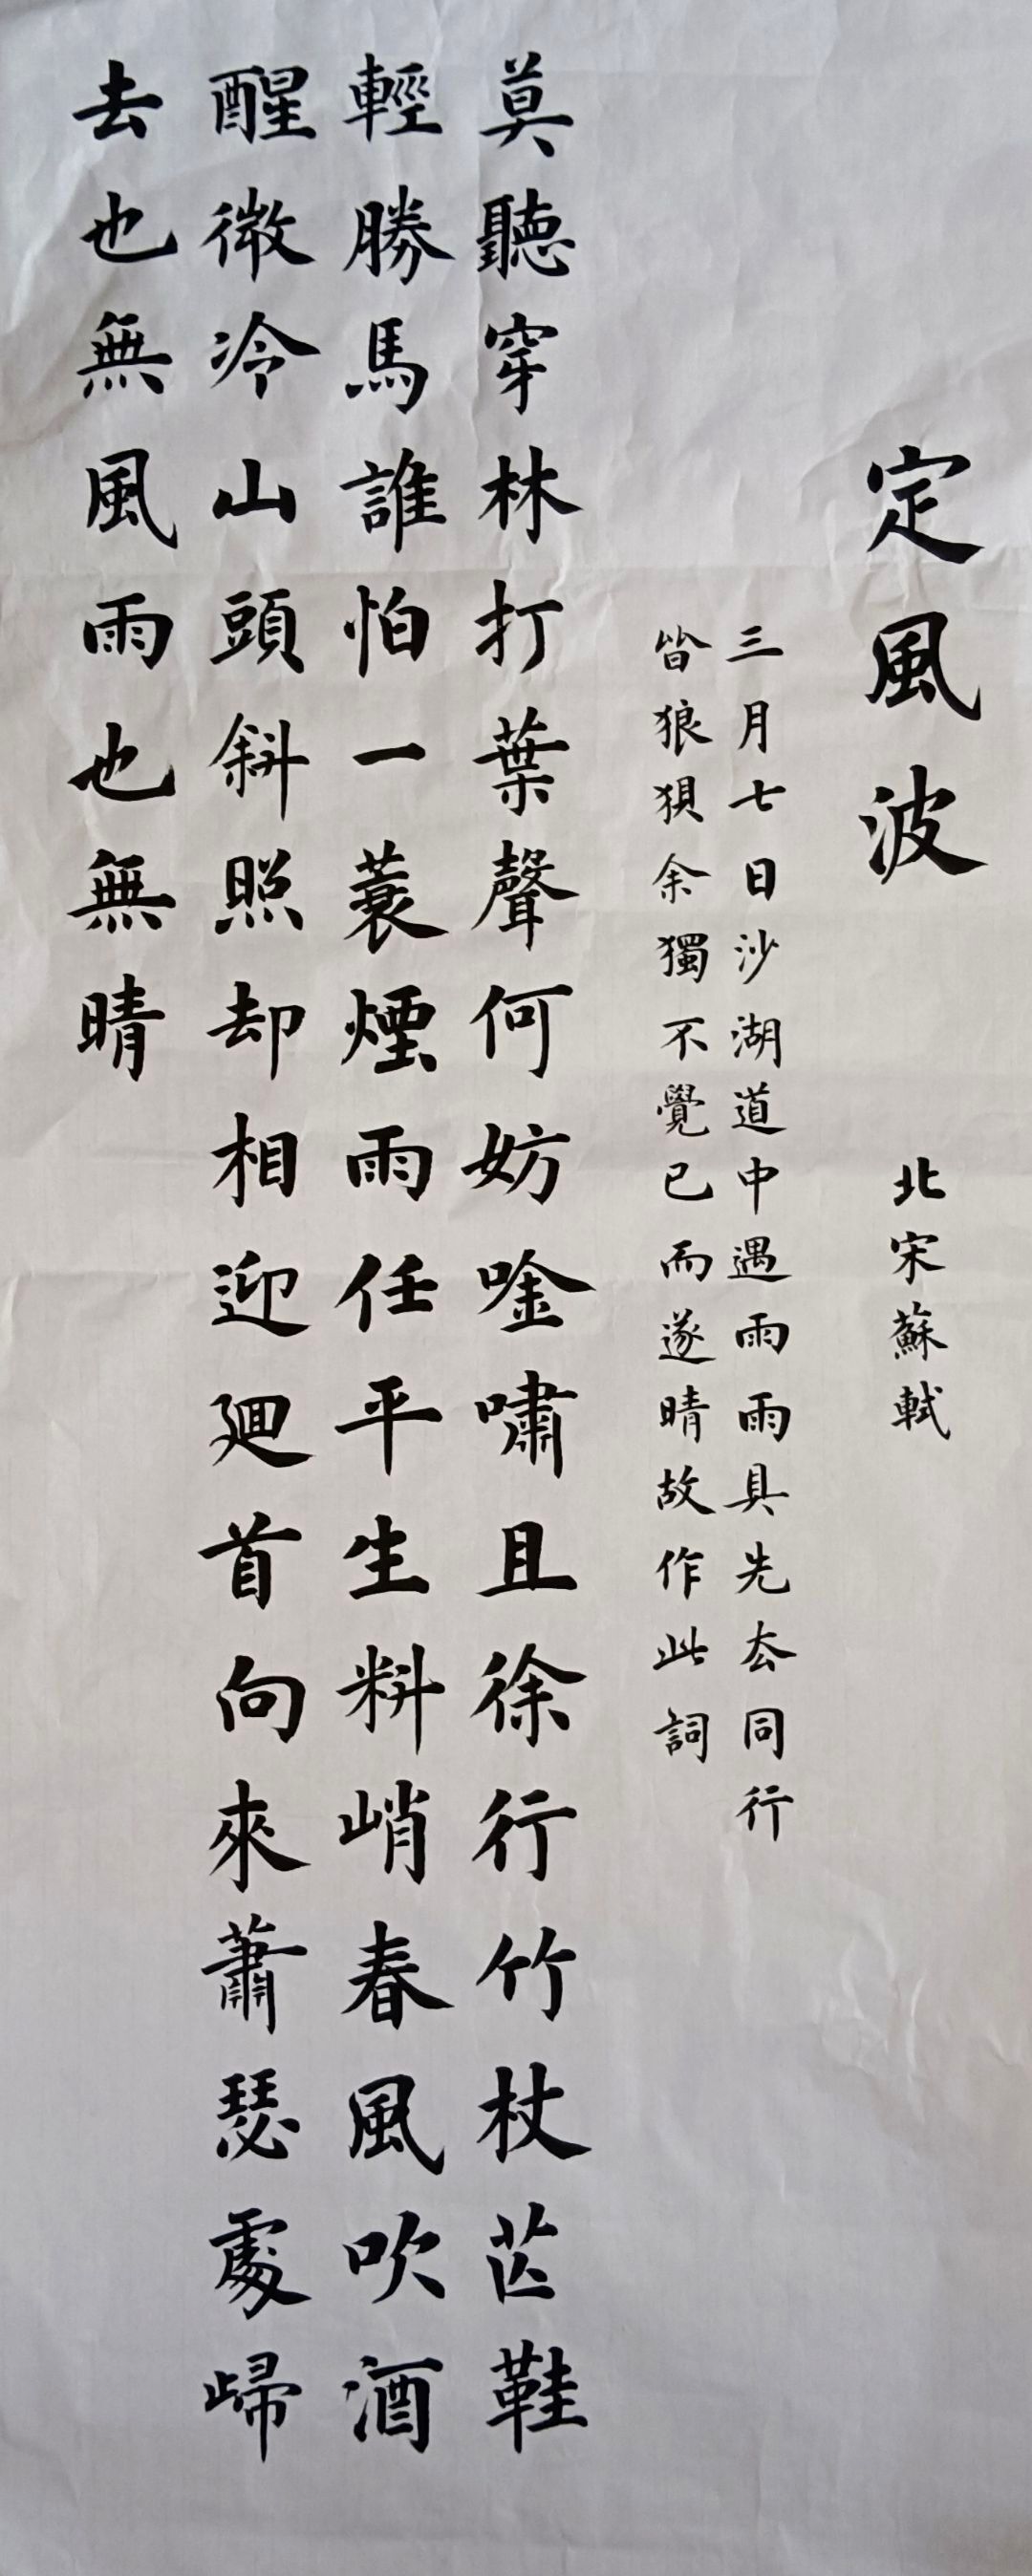 定風波 北宋蘇軾
三月七日沙湖道中遇雨雨具先去同行
皆狼狽余獨不覺已而遂晴故作此詞
莫聽穿林打葉聲何妨唫嘯且徐行竹杖芒鞋
輕勝馬誰怕一蓑煙雨任平生料峭春風吹酒
醒微冷山頭斜照却相迎迴首向來蕭瑟處歸
去也無風雨也無晴